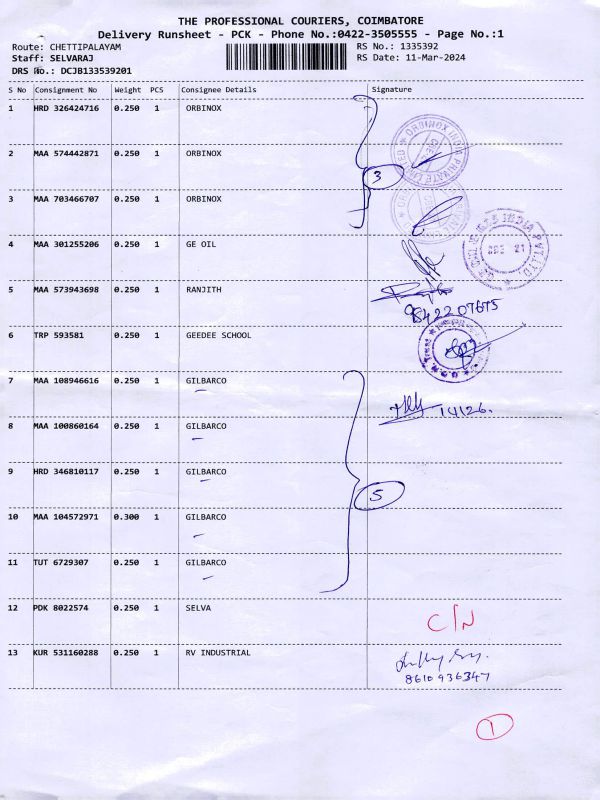 THE PROFESSIONAL COURIERS, COIMBATORE
Delivery Runsheet - PCK - Phone No.:0422-3505555 - Page No.:1
Route: CHETTIPALAYAM RS No.: 1335392
Staff: SELVARAJ RS Date: 11-Mar-2024
DRS No.: DCJB133539201
S No Consignment No Weight PCS Consignee Details Signature
1 HRD 326424716 0.250 1 ORBINOX
2 MAA 574442871 0.250 1 ORBINOX
3
3 MAA 703466707 0.250 1 ORBINOX
4 MAA 301255206 0.250 1 GE OIL
5 MAA 573943698 0.250 1 RANJITH
9842207675
6 TRP 593581 0.250 1 GEEDEE SCHOOL
7 MAA 108946616 0.250 1 GILBARCO
14126.
8 MAA 100860164 0.250 1 GILBARCO
9 HRD 346810117 0.250 1 GILBARCO
5
10 MAA 104572971 0.300 1 GILBARCO
11 TUT 6729307 0.250 1 GILBARCO
12 PDK 8022574 0.250 1 SELVA C/N
13 KUR 531160288 0.250 1 RV INDUSTRIAL
8610936347
1